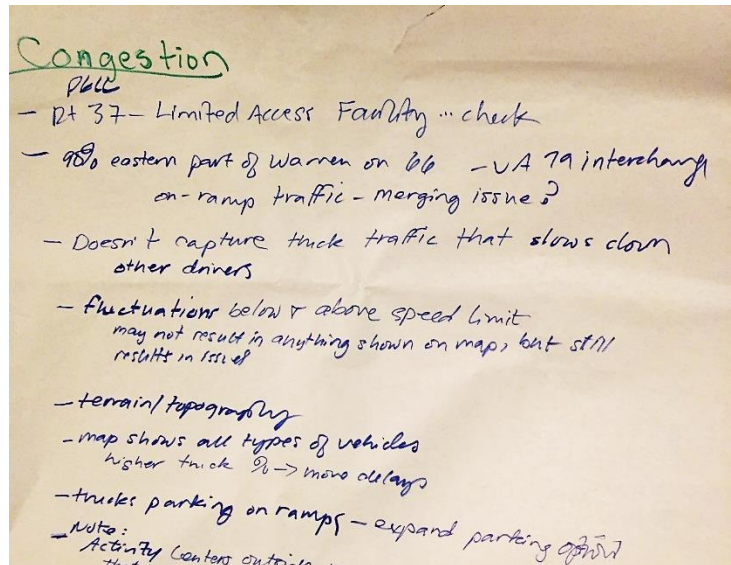 Congestion
- Rt 37 - Limited Access Facility ... check
- 90% eastern part of Warren on 66 - VA 79 interchange
on-ramp traffic - merging issue?
- Doesn't capture truck traffic that slows down
other drivers
- fluctuations below & above speed limit
may not result in anything shown on map, but still
results in issues
- terrain/topography
- map shows all types of vehicles
higher truck % -> more delays
- trucks parking on ramps - expand parking options
- Note:
Activity Centers outside